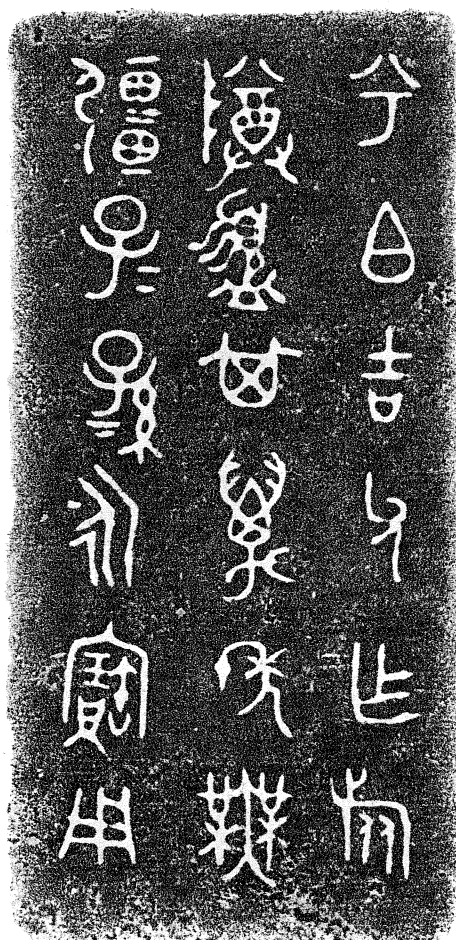 兮白吉父乍旅
尊盨其萬年無
疆子=孫=永寶用